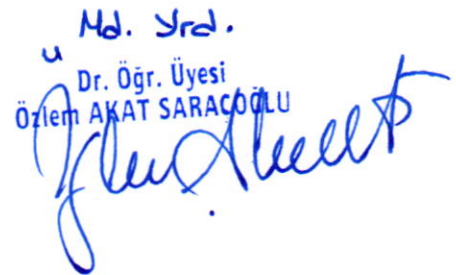 Md. Yrd.
Dr. Öğr. Üyesi
Özlem AKAT SARAÇOĞLU